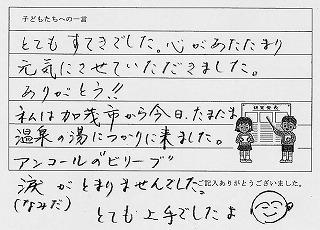 子どもたちへの一言
とてもすてきでした。心があたたまり
元気にさせていただきました。
ありがとう!!
私は加茂市から今日、たまたま
温泉の湯につかりに来ました。
アンコールの"ビリーブ"
涙がとまりませんでした。
(なみだ)
ご記入ありがとうございました。
とても上手でしたよ